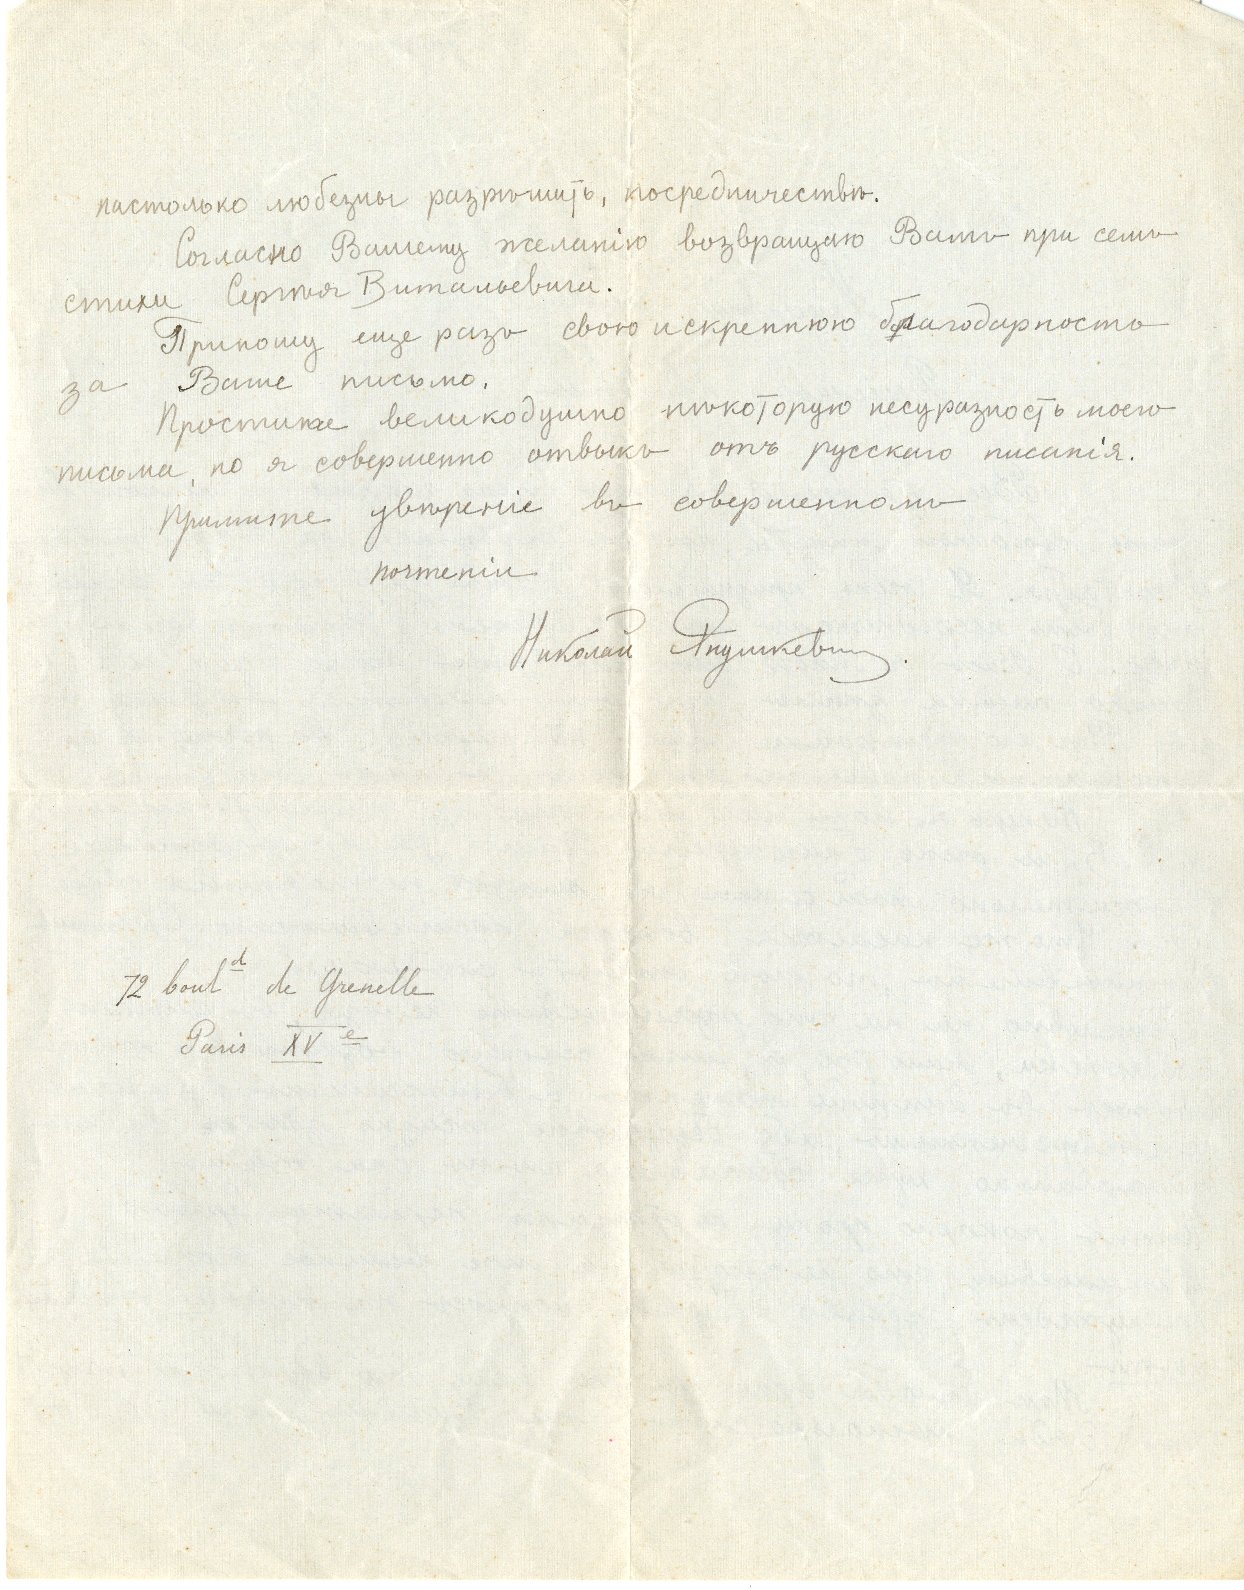 настолько любезны разрѣшить, посредничествѣ.
Согласно Вашему желанію возвращаю Вамъ при семъ
стихи Сергѣя Витальевича.
Приношу еще разъ свою искреннюю благодарность
за Ваше письмо.
Простите великодушно нѣкоторую несуразность моего
письма, но я совершенно отвыкъ отъ русскаго писанія.
Примите увѣреніе въ совершенномъ
почтеніи
Николай Янушкевичъ.
72 boul<sup>d</sup> de Grenelle
Paris XV<sup>e</sup>